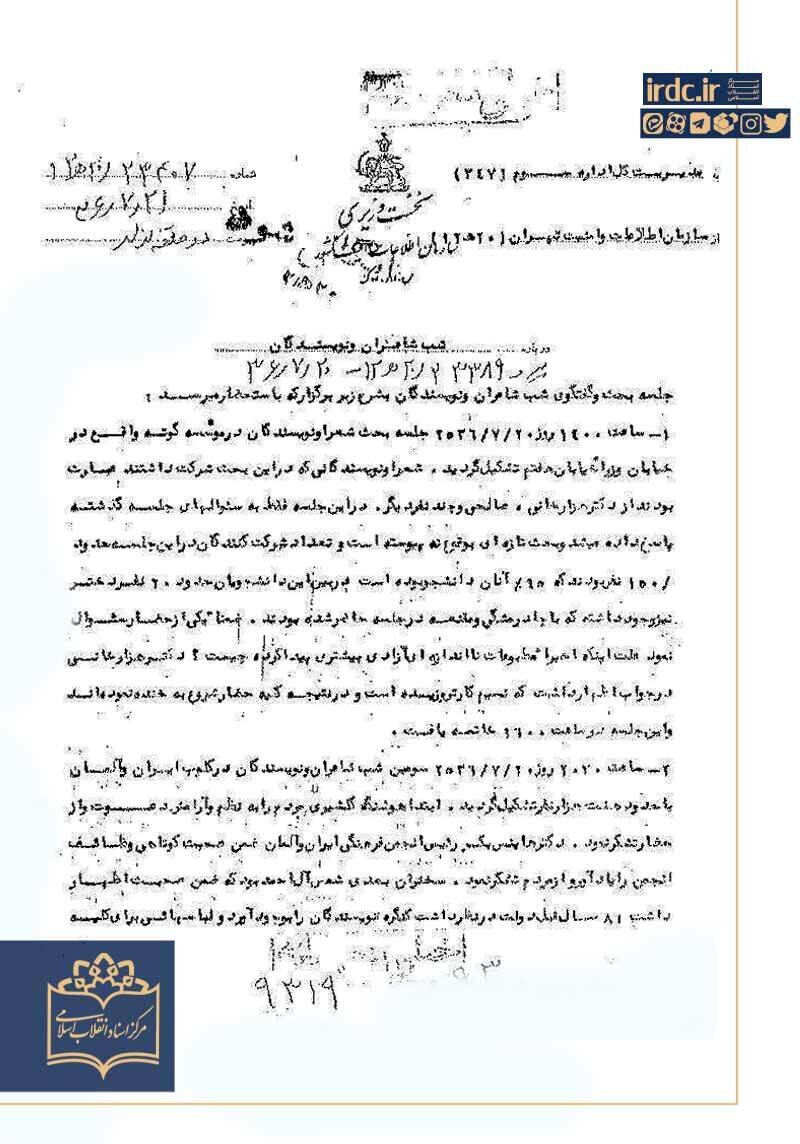 irdc.ir
مرکز اسناد انقلاب اسلامی
به مدیریت کل اداره سوم (۳۴۷)
شماره ۲۳۴۰۷ / ۲۰ه۱۲
از سازمان اطلاعات و امنیت تهران (۲۰ه۱۲)
نخست وزیری
سازمان اطلاعات و امنیت کشور
درباره شب شاعران و نویسندگان
پیرو ۲۳۳۸۹ / ۲۰ه۱۲ - ۳۶/۷/۲۰
جلسه بحث و گفتگوی شب شاعران و نویسندگان بشرح زیر برگزار که باستحضار میرسد :
۱ـ ساعت ۱۴۰۰ روز ۲۵۳۶/۷/۲۰ جلسه بحث شعرا و نویسندگان در موسسه گوته واقع در
خیابان وزراء خیابان هفتم تشکیل گردید . شعرا و نویسندگانی که در این بحث شرکت داشتند عبارت
بودند از دکتر هزارخانی ، صالحی و چند نفر دیگر. در این جلسه فقط به سئوالهای جلسه گذشته
پاسخ داده میشد و بحث تازه ای بوقوع نه پیوسته است و تعداد شرکت کنندگان در این جلسه حدود
۱۵۰/ نفر بودند که ۹۵٪ آنان دانشجو بوده است در بین این دانشجویان حدود ۲۰ نفر دختر
نیز وجود داشته که با چادر مشگی و مقنعه در جلسه حاضر شده بودند . ضمنا" یکی از حضار سئوال
نمود علت اینکه اخیرا" مطبوعات تا اندازه ای آزادی بیشتری پیدا کرده چیست ؟ دکتر هزارخانی
در جواب اظهار داشت که نسیم کارتر وزیده است و در نتیجه کلیه حضار شروع به خنده نموده اند
و این جلسه در ساعت ۱۶۰۰ خاتمه یافت .
۲ـ ساعت ۲۰۳۰ روز ۲۵۳۶/۷/۲۰ سومین شب شاعران و نویسندگان در کلوپ ایران و آلمان
با حدود هشت هزار نفر تشکیل گردید . ابتدا هوشنگ گلشیری مردم را به نظم و آرامش دعوت و از
حضار تشکر نمود . دکتر هاینس بکر رئیس انجمن فرهنگی ایران و آلمان ضمن صحبت کوتاهی وظائف
انجمن را یادآور و از مردم تشکر نمود . سخنران بعدی شمس آل احمد بود که ضمن صحبت اظهار
داشت ۸۱ سال قبل دولت در نظر داشت کنگره نویسندگان را بوجود آورد و لباسهائی برای کلیه
۹۳۱۹
مرکز اسناد انقلاب اسلامی